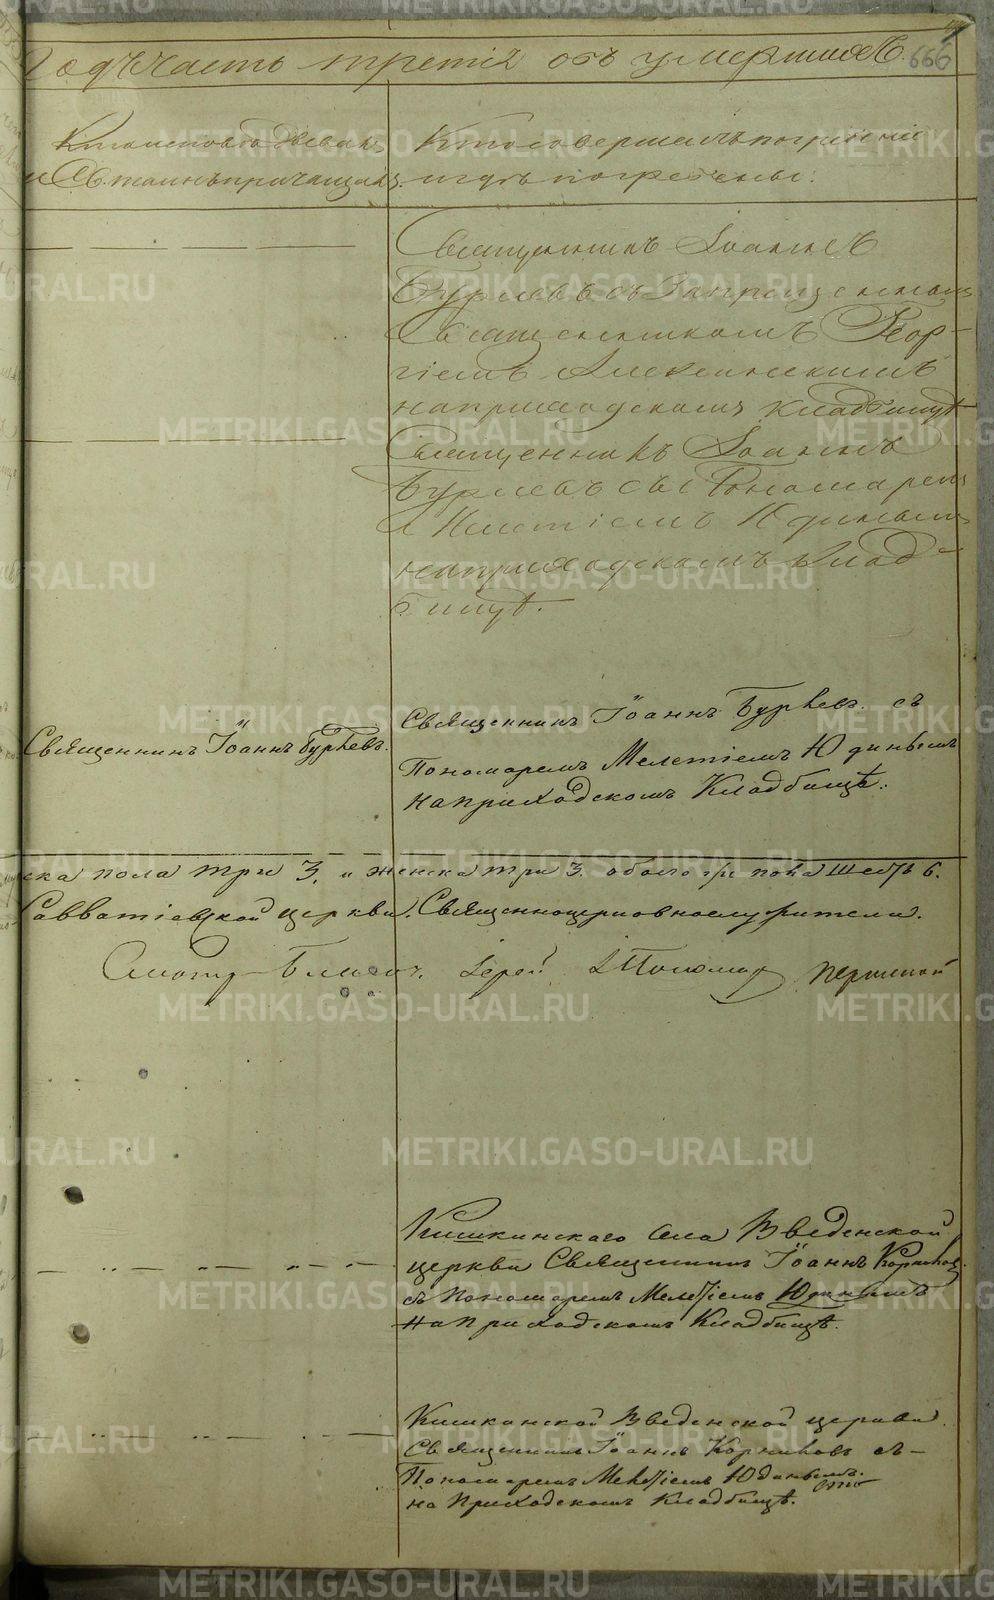 Годъ Часть третія объ умершихъ. 666
Кто исповѣдывалъ
и Св. таинъ причащалъ.
Кто совершалъ погребеніе
и гдѣ погребены.
Священникъ Іоаннъ
Бурлевъ съ Запрещеннымъ
Священникомъ Геор-
гіемъ
на приходскомъ кладбищѣ
Священникъ Іоаннъ
Бурлевъ съ Пономаремъ
Мелетіемъ Юдинымъ
на приходскомъ Клад-
бищѣ.
Священникъ Іоаннъ Бурлевъ.
Священникъ Іоаннъ Бурлевъ съ
Пономаремъ Мелетіемъ Юдинымъ
на приходскомъ Кладбищѣ.
ска пола три 3, и женска три 3. обоего пола шесть 6.
Савватіевской церкви. Священноцерковнослужители.
Іерей
Кишкинскаго села Введенской
церкви Священникъ Іоаннъ Корниловъ
съ Пономаремъ Мелетіемъ Юдинымъ
на Приходскомъ Кладбищѣ.
Кишкинской Введенской церкви
Священникъ Іоаннъ Корниловъ съ
Пономаремъ Мелетіемъ Юдинымъ.
на Приходскомъ Кладбищѣ.
METRIKI.GASO-URAL.RU